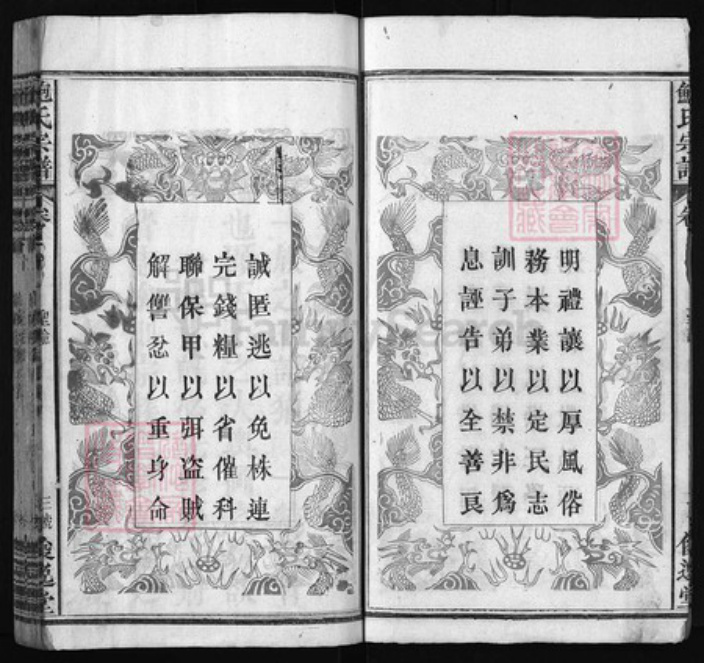 明禮讓以厚風俗
務本業以定民志
訓子弟以禁非為
息誣告以全善良
誡匿逃以免株連
完錢糧以省催科
聯保甲以弭盜賊
解讐忿以重身命
鮑氏宗譜
鮑氏宗譜
FamilySearch